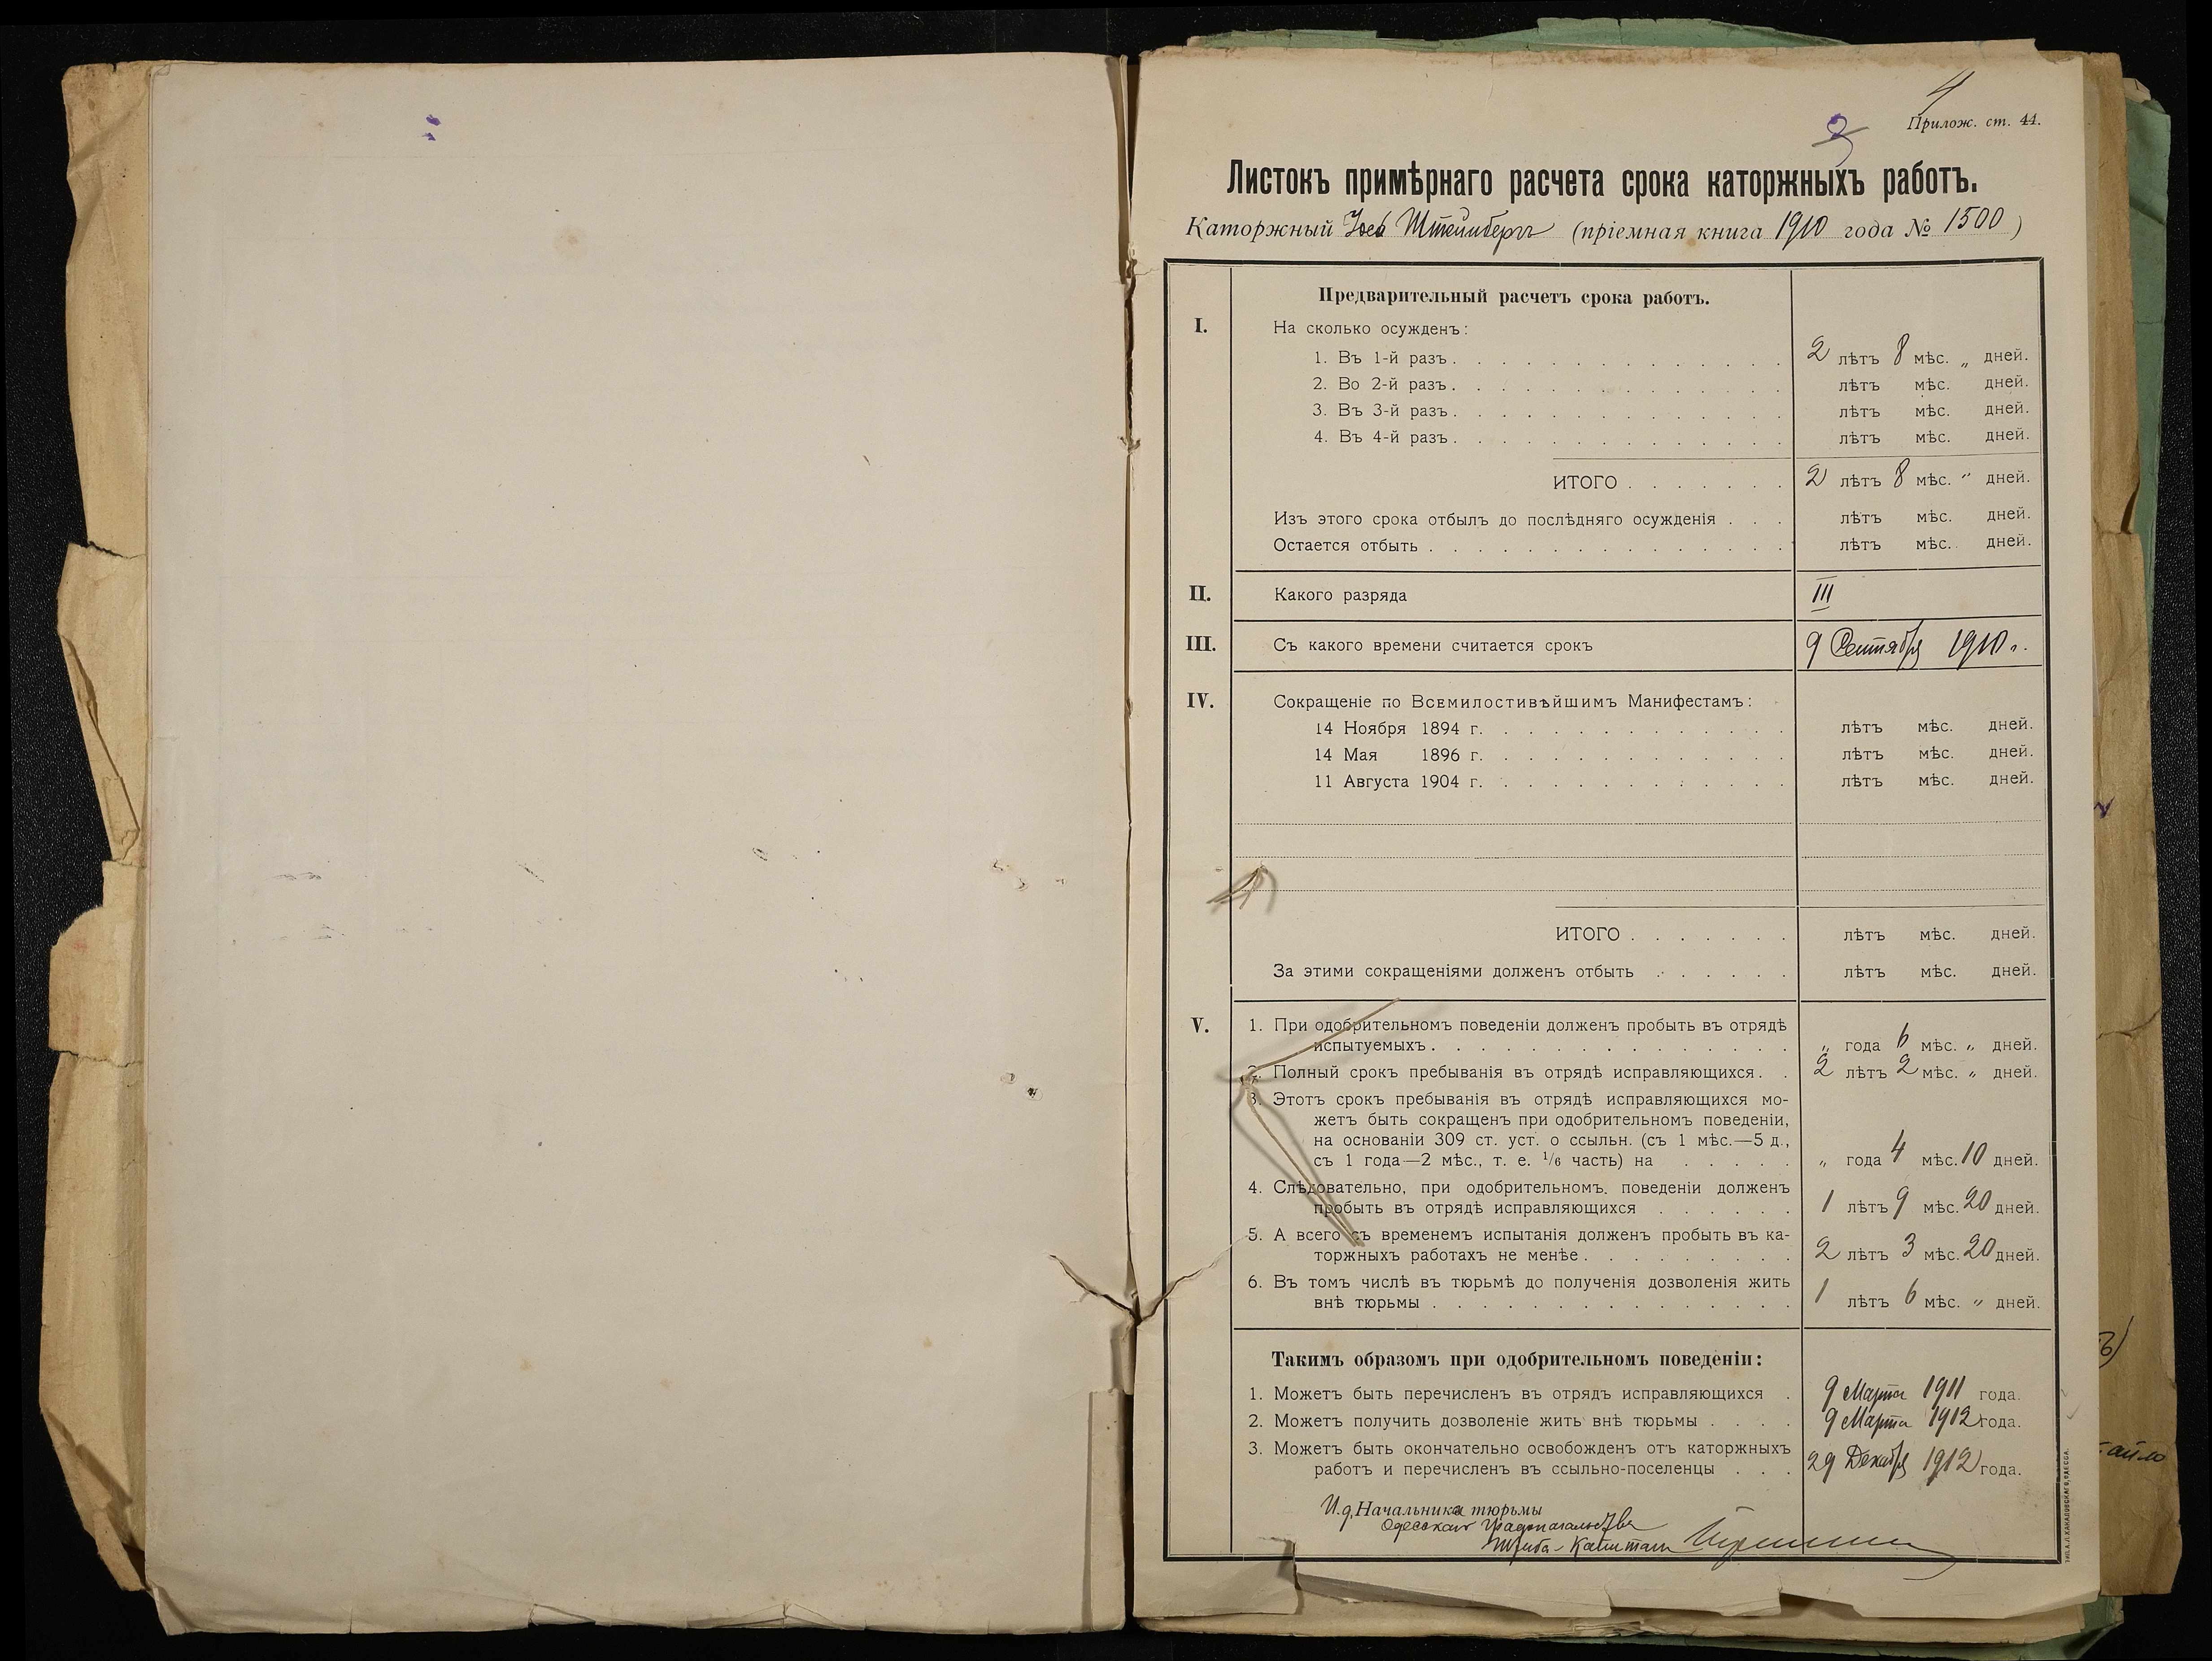 4
2
Прилож. ст. 44.
Листокъ примѣрнаго расчета срока каторжныхъ работъ.
Каторжный Іось Штейнбергъ (пріемная книга 1910 года № 1500)
Предварительный расчетъ срока работъ.
I. На сколько осужденъ:
1. Въ 1-й разъ . . . 2 лѣтъ 8 мѣс. „ дней.
2. Во 2-й разъ . . . лѣтъ мѣс. дней.
3. Въ 3-й разъ . . . лѣтъ мѣс. дней.
4. Въ 4-й разъ . . . лѣтъ мѣс. дней.
ИТОГО . . . 2 лѣтъ 8 мѣс. „ дней.
Изъ этого срока отбылъ до послѣдняго осужденія . . . лѣтъ мѣс. дней.
Остается отбыть . . . лѣтъ мѣс. дней.
II. Какого разряда III
III. Съ какого времени считается срокъ 9 Сентября 1910 г.
IV. Сокращеніе по Всемилостивѣйшимъ Манифестамъ:
14 Ноября 1894 г. . . . лѣтъ мѣс. дней.
14 Мая 1896 г. . . . лѣтъ мѣс. дней.
11 Августа 1904 г. . . . лѣтъ мѣс. дней.
ИТОГО . . . лѣтъ мѣс. дней.
За этими сокращеніями долженъ отбыть . . . лѣтъ мѣс. дней.
V. 1. При одобрительномъ поведеніи долженъ пробыть въ отрядѣ
испытуемыхъ . . . „ года 6 мѣс. „ дней.
2. Полный срокъ пребыванія въ отрядѣ исправляющихся . . 2 лѣтъ 2 мѣс. „ дней.
3. Этотъ срокъ пребыванія въ отрядѣ исправляющихся мо-
жетъ быть сокращенъ при одобрительномъ поведеніи,
на основаніи 309 ст. уст. о ссыльн. (съ 1 мѣс.—5 д.,
съ 1 года—2 мѣс., т. е. 1/6 часть) на . . . „ года 4 мѣс. 10 дней.
4. Слѣдовательно, при одобрительномъ. поведеніи долженъ
пробыть въ отрядѣ исправляющихся . . . 1 лѣтъ 9 мѣс. 20 дней.
5. А всего съ временемъ испытанія долженъ пробыть въ ка-
торжныхъ работахъ не менѣе . . . 2 лѣтъ 3 мѣс. 20 дней.
6. Въ томъ числѣ въ тюрьмѣ до полученія дозволенія жить
внѣ тюрьмы . . . 1 лѣтъ 6 мѣс. „ дней.
Такимъ образомъ при одобрительномъ поведеніи:
1. Можетъ быть перечисленъ въ отрядъ исправляющихся . 9 Марта 1911 года.
2. Можетъ получить дозволеніе жить внѣ тюрьмы . . . 9 Марта 1912 года.
3. Можетъ быть окончательно освобожденъ отъ каторжныхъ
работъ и перечисленъ въ ссыльно-поселенцы . . . 29 Декабря 1912 года.
И.д. Начальника тюрьмы
Одесскаго Градоначальства
Штабс-Капитанъ